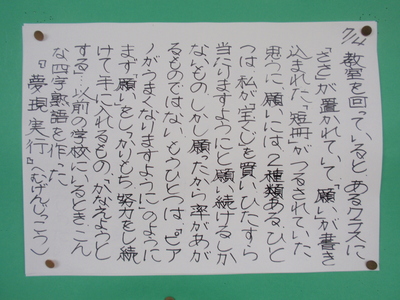 7/4
教室を回っていると、あるクラスに
「ささ」が置かれていて、「願い」が書き
込まれた「短冊」がつるされていた。
思うに、「願い」には、2種類ある。ひと
つは、私が宝くじを買い、ひたすら
当たりますようにと願い続けるしか
ないもの。しかし願ったから率があが
るものではない。もうひとつは、「ピア
ノがうまくなりますように」のように
まず「願い」をしっかりもち、努力をし続
けて手に入れるもの。「かなえようと
する」…以前の学校にいるとき、こん
な四字熟語を作った。
『夢現実行』(むげんじっこう)